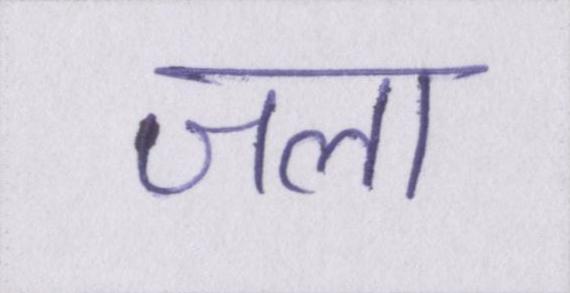 जला